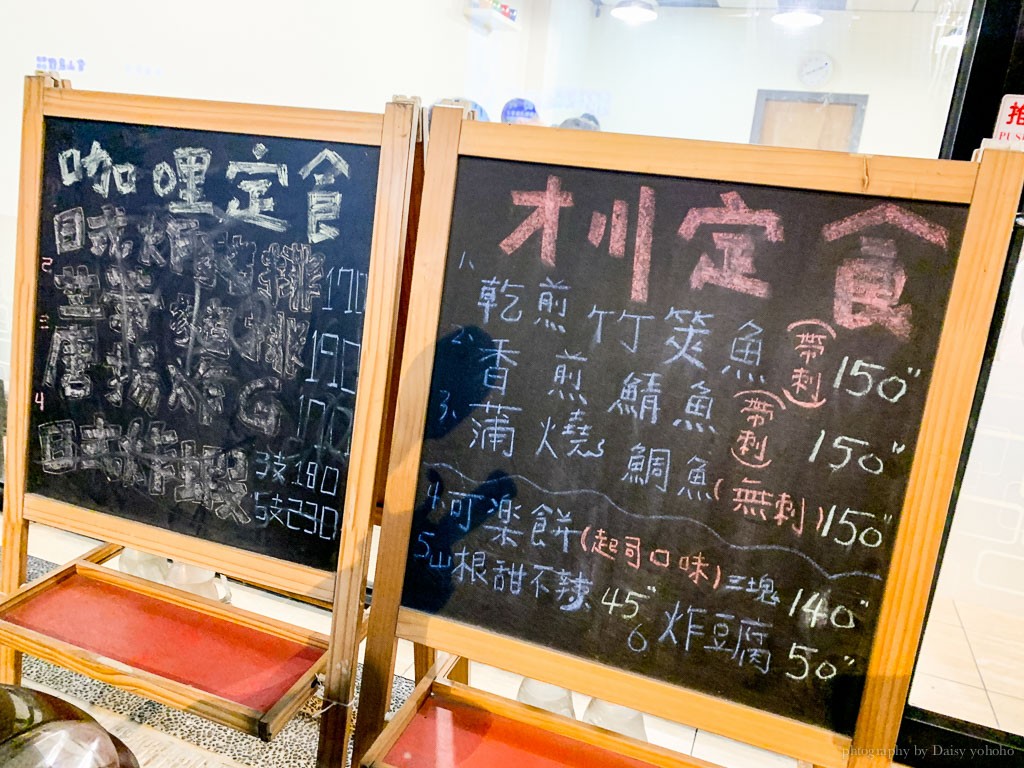 咖哩定食
日式炸豬排 170
2 起司豬排 190
三 唐揚炸雞 170
4 日式炸蝦 3支180
5支230
才川定食
1、乾煎竹筴魚(帶刺) 150"
2、香煎鯖魚(帶刺) 150"
3、蒲燒鯛魚(無刺) 150"
4、可楽餅(起司口味)三塊 140"
5、山根甜不辣 45"
6 炸豆腐 50"
PUSH
photography by Daisy yohoho